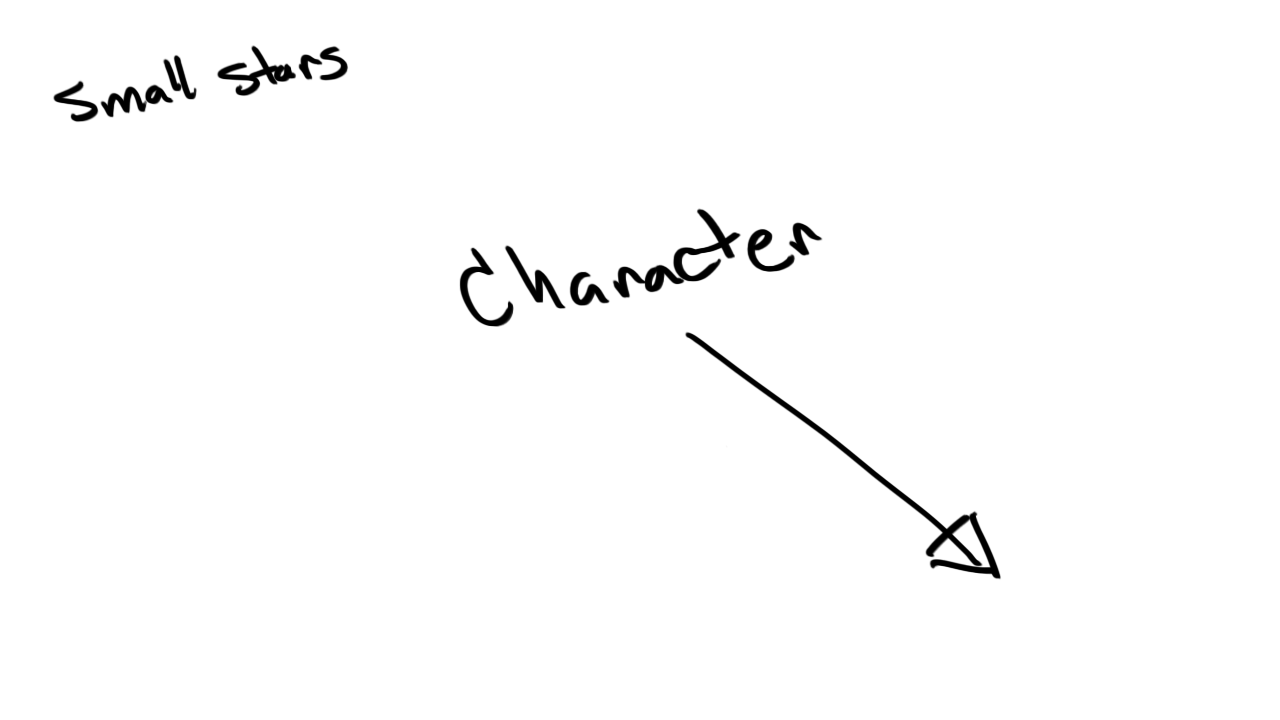 Small stars
Character